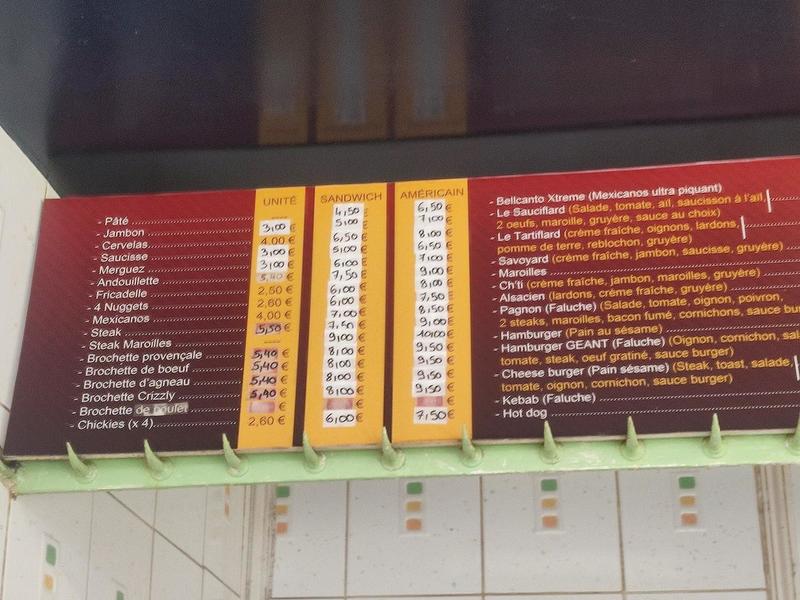 UNITÉ SANDWICH AMÉRICAIN
- Pâté 4,50 6,50
- Jambon 3,00 € 5,00 € 7,00 €
- Cervelas 4,00 € 6,50 € 8,00 €
- Saucisse 3,00 € 5,00 € 6,50 €
- Merguez 3,00 € 6,00 € 7,00 €
- Andouillette 5,40 € 7,50 € 9,00 €
- Fricadelle 2,50 € 6,00 € 8,00 €
- 4 Nuggets 2,60 € 6,00 € 7,50 €
- Mexicanos 4,00 € 7,00 € 8,50 €
- Steak 5,50 € 7,50 € 9,00 €
- Steak Maroilles 9,00 € 10,00 €
- Brochette provençale 5,40 € 8,00 € 9,50 €
- Brochette de boeuf 5,40 € 8,00 € 9,50 €
- Brochette d'agneau 5,40 € 8,00 € 9,50 €
- Brochette Crizzly 5,40 € 8,00 € 9,50 €
- Brochette de poulet € € €
- Chickies (x 4) 2,60 € 6,00 € 7,50 €
- Bellcanto Xtreme (Mexicanos ultra piquant)
- Le Sauciflard (Salade, tomate, ail, saucisson à l'ail,
2 oeufs, maroille, gruyère, sauce au choix)
- Le Tartiflard (crème fraîche, oignons, lardons,
pomme de terre, reblochon, gruyère)
- Savoyard (crème fraîche, jambon, saucisse, gruyère)
- Maroilles
- Ch'ti (crème fraîche, jambon, maroilles, gruyère)
- Alsacien (lardons, crème fraîche, gruyère)
- Pagnon (Faluche) (Salade, tomate, oignon, poivron,
2 steaks, maroilles, bacon fumé, cornichons, sauce
- Hamburger (Pain au sésame)
- Hamburger GEANT (Faluche) (Oignon, cornichon,
tomate, steak, oeuf gratiné, sauce burger)
- Cheese burger (Pain sésame) (Steak, toast, salade,
tomate, oignon, cornichon, sauce burger)
- Kebab (Faluche)
- Hot dog